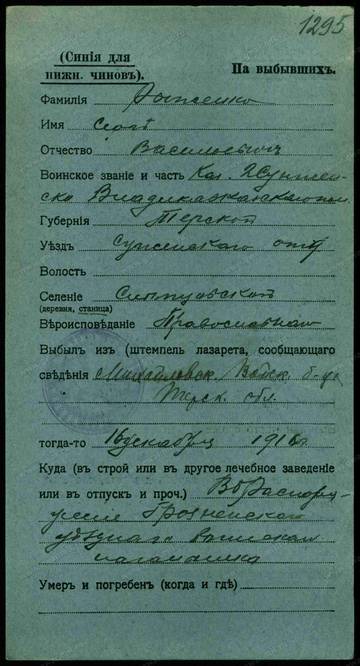 1295
(Синія для
нижн. чиновъ).
На выбывшихъ.
Фамилія
Имя
Отчество Васильевич
Воинское званіе и часть Каз.
Владикавказскаго
Губернія Терской
Уѣздъ Сунженскаго отд
Волость
Селеніе Слѣпцовской
(деревня, станица)
Вѣроисповѣданіе Православнаго
Выбылъ изъ (штемпель лазарета, сообщающаго
свѣдѣнія Михайловск. Войск. б-ца
Терск. обл.
тогда-то 16 декабря 1916
Куда (въ строй или въ другое лечебное заведеніе
или въ отпускъ и проч.) В распоря-
жение Грозненскаго
уѣзднаго Воинскаго
начальника
Умеръ и погребенъ (когда и гдѣ)